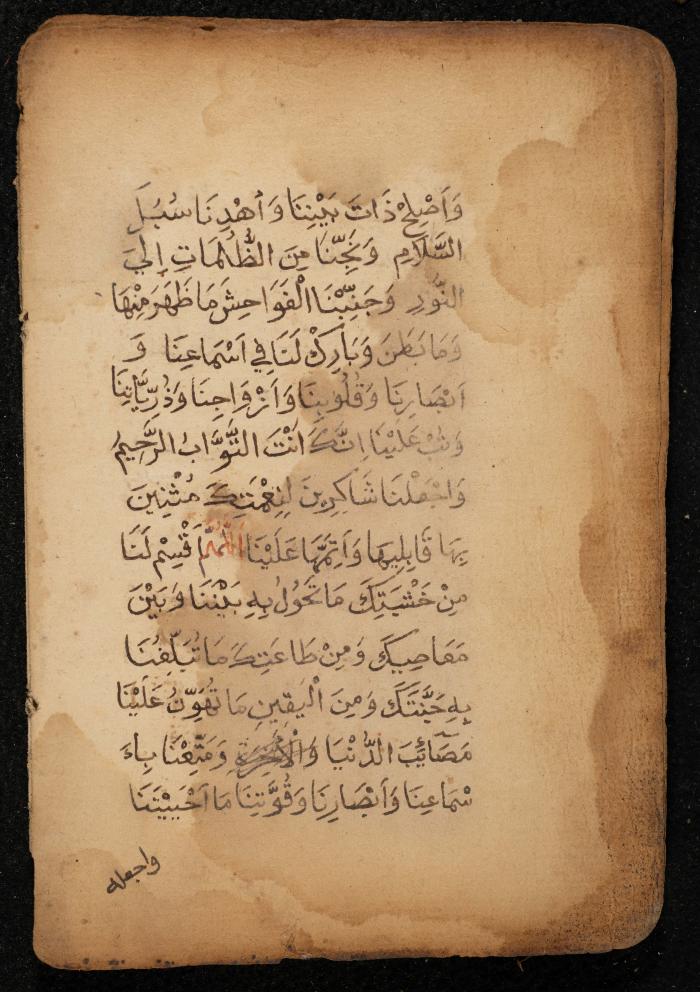 وَاَصْلِحْ ذَاتَ بَيْنِنَا وَاَهْدِنَا سُبُلَ
السَّلَامِ وَنَجِّنَا مِنَ الظُّلُمَاتِ اِلَيَ
النُّورِ وَجَنِّبْنَا الْفَوَاحِشَ مَا ظَهَرَ مِنْهَا
وَمَا بَطَنَ وَبَارِكْ لَنَا فِي اَسْمَاعِنَا وَ
اَبْصَارِنَا وَقُلُوبِنَا وَاَزْوَاجِنَا وَذُرِّيَّاتِنَا
وَتُبْ عَلَيْنَا اِنَّكَ اَنْتَ التَّوَّابُ الرَّحِيمُ
وَاجْعَلْنَا شَاكِرِينَ لِنِعْمَتِكَ مُثْنِينَ
بِهَا قَابِلِيهَا وَاَتِمَّهَا عَلَيْنَا اَللّٰهُمَّ اَقْسِمْ لَنَا
مِنْ خَشْيَتِكَ مَا تَحُولُ بِهِ بَيْنَنَا وَبَيْنَ
مَعَاصِيكَ وَمِنْ طَاعَتِكَ مَا تُبَلِّغُنَا
بِهِ جَنَّتَكَ وَمِنَ الْيَقِينِ مَا تُهَوِّنُ عَلَيْنَا
مَصَآئِبَ الدُّنْيَا وَالْاٰخِرَةِ وَمَتِّعْنَا بِاَ
سْمَاعِنَا وَاَبْصَارِنَا وَقُوَّتِنَا مَا اَحْيَيْتَنَا
واجعله